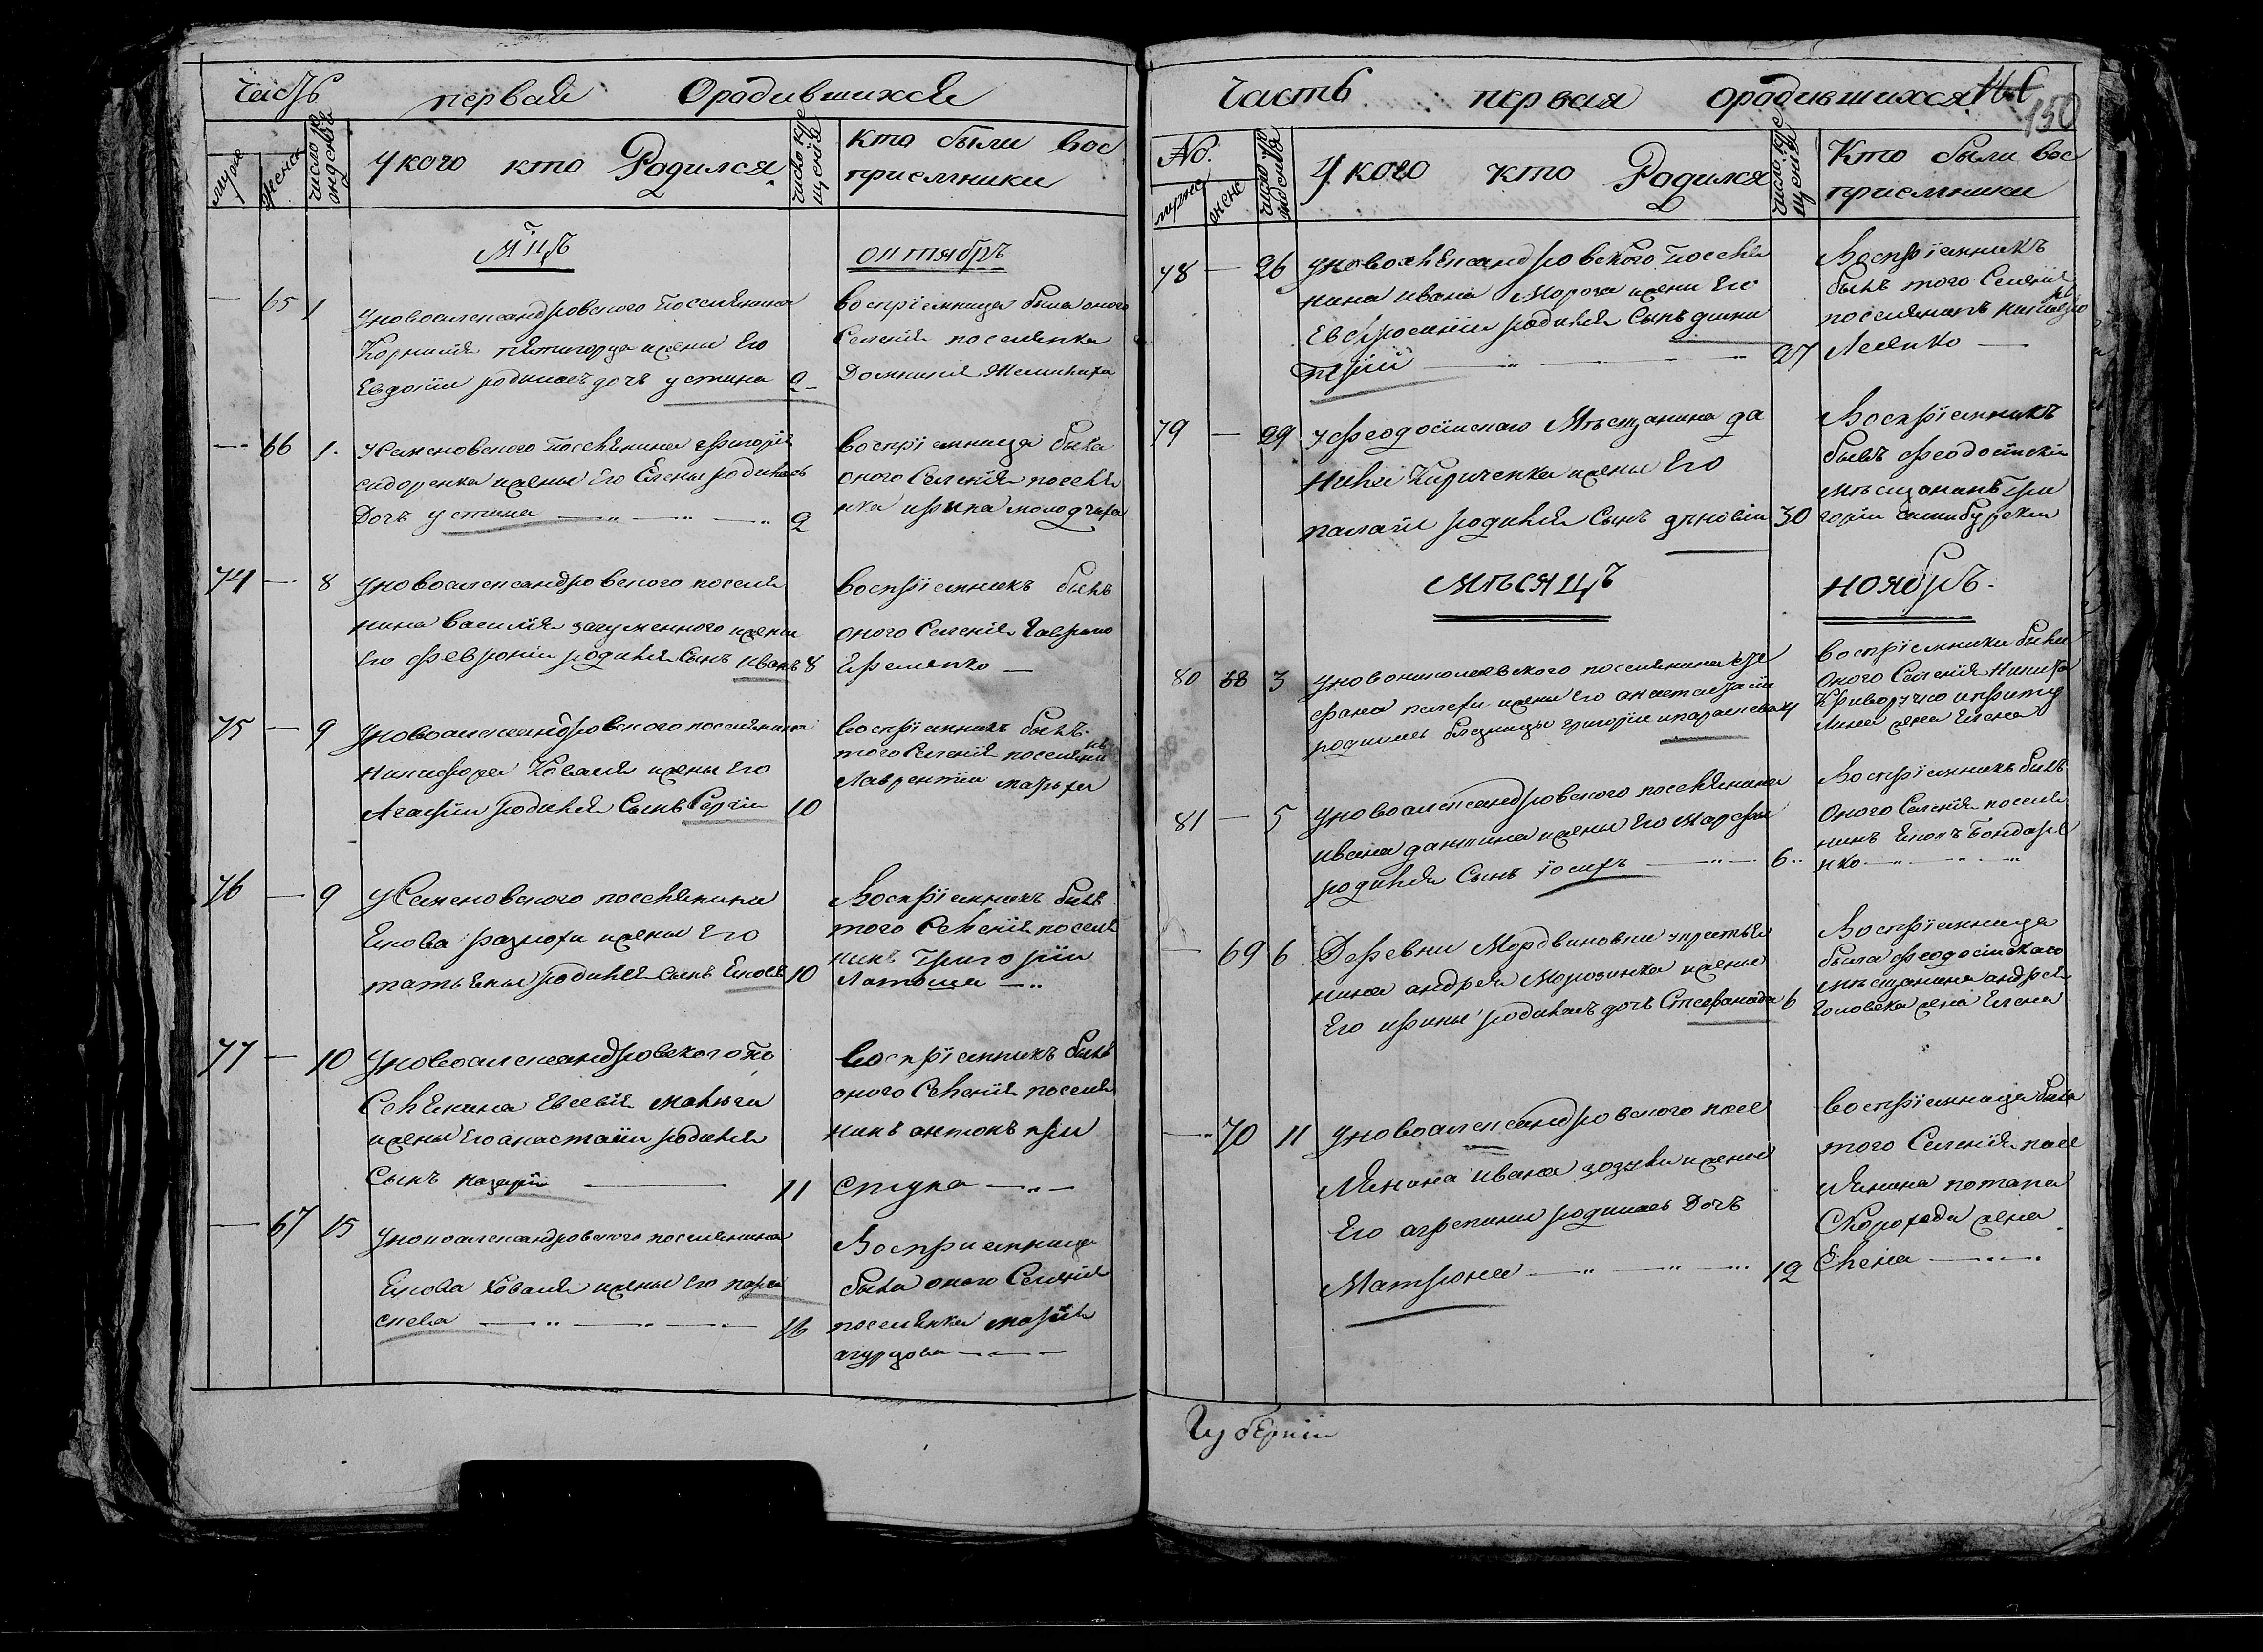 Часть первая Ородившихся
мужс женск число рожденія
У кого кто Родился
число крещенія
Кто были вос
приемники
Мцъ октябрь
— 65 1
Уновоалександровского поселянина
Корнилія пятигорца жены Его
Евдокіи родилась дочь устина 2
воспріемница была оного
Селенія поселянка
Домникія
— 66 1
Усеменовского поселянина григорія
сидоренка жены Его Елены родилась
Дочь устина 2
воспріемница была
оного Селенія поселя
нка ирина молодчиха
74 — 8
Уновоалександровского поселя
нина василія загуменного жены
Его февроніи родился Сынъ иванъ 8
воспріемникъ былъ
оного Селенія гаврило
Ефименко
75 — 9
Уновоалександровского поселянина
никифора Коваля жены Его
Агафіи родился Сынъ Сергій 10
воспріемникъ былъ
того Селенія поселянинъ
Лаврентій
76 — 9
УСеменовского поселянина
Екова жены Его
татьяны родился сынъ Ековъ 10
Воспріемникъ былъ
того Селенія поселя
нинъ Григорій
Латоша
77 — 10
Уновоалександровского по
Селянина Евсевія малюги
жены Его анастасіи родился
Сынъ назарій 11
воспріемникъ былъ
оного Селенія поселя
нинъ антонъ при
ступа
— 67 15
Уновоалександровского поселянина
Екова Коваля жены Его пара
скева 16
Восприемница
была оного Селенія
поселянка марія
Часть первая ородившихся
150
No.
мужс женс число рожденія
У кого кто Родился
число крещенія
Кто были вос
приемники
78 — 26
Уновоалександровского поселя
нина ивана Мороза жены Его
Евфросиніи родился Сынъ дими
трій 27
Воспріемникъ
былъ того Селенія
поселянинъ
Лелико
79 — 29
Уфеодосійского Мѣщанина да
нила Кириченка жены Его
палагіи родился Сынъ зѣновій 30
Воспріемникъ
былъ феодосійскій
мѣщанинъ гри
горій
Мѣсяцъ ноябрь
80 68 3
Уновониколаевского поселянина сте
фана жены Его анастасіи
родились близнецы григорій ипараскева 4
воспріемники были
оного Селенія Никита
Криворучко
жена Елена
81 — 5
Уновоалександровского поселянина
ивана жены Его Марфы
родился Сынъ іосифъ 6
Воспріемникъ былъ
оного Селенія поселя
нинъ Бондаре
нко
— 69 6
Деревни Мордвиновки
нина андрея Морозинка жены
Его ирины родилась дочь Стефанида 6
Воспріемница
была феодосійского
мѣщанина андрея
Головека жена Елена
— 70 11
Уновоалександровского посе
лянина ивана зозули жены
Его агрепины родилась Дочь
Матрона 12
воспріемница была
того Селенія посе
лянина потапа
Скорохода жена
Елена
Губерніи